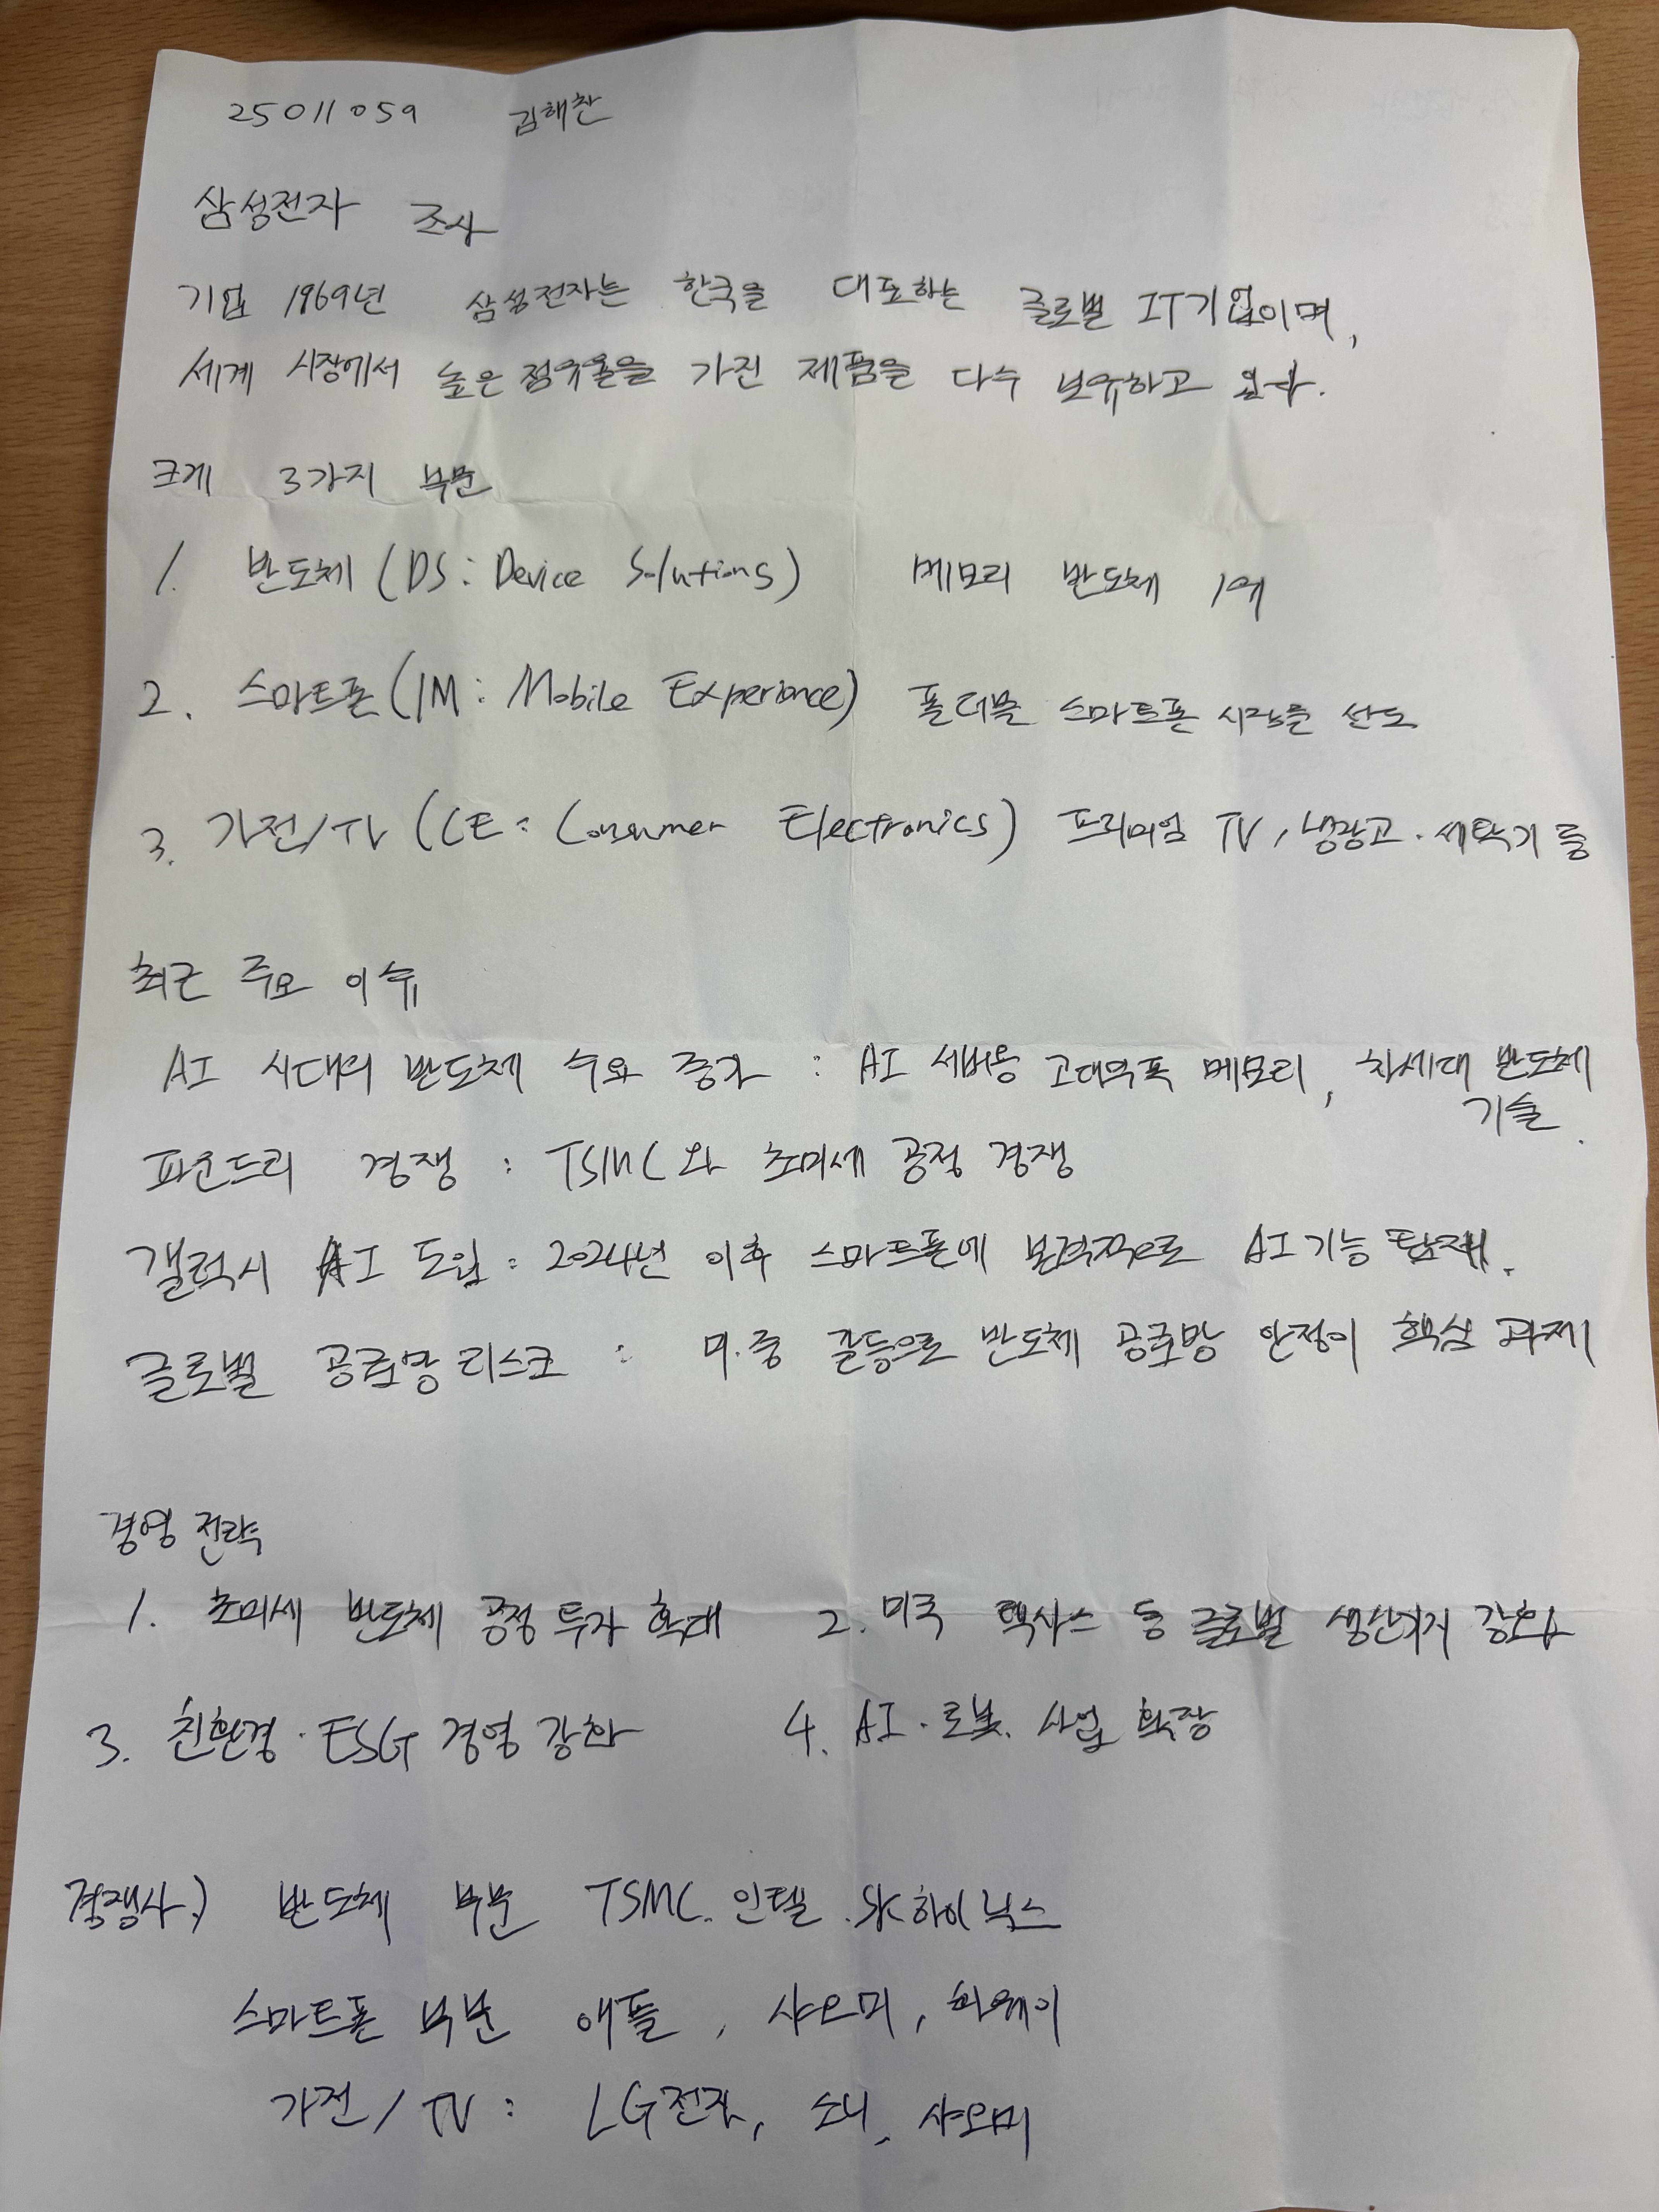 25011059 김해찬
삼성전자 조사
기업 1969년 삼성전자는 한국을 대표하는 글로벌 IT기업이며,
세계 시장에서 높은 점유율을 가진 제품을 다수 보유하고 있다.
크게 3가지 부문
1. 반도체 (DS : Device Solutions) 메모리 반도체 1위
2. 스마트폰 (IM : Mobile Experience) 폴더블 스마트폰 시장을 선도
3. 가전/TV (CE : Consumer Electronics) 프리미엄 TV, 냉장고 · 세탁기 등
최근 주요 이슈
AI 시대의 반도체 수요 증가 : AI 서버용 고대역폭 메모리, 차세대 반도체
기술.
파운드리 경쟁 : TSMC와 초미세 공정 경쟁
갤럭시 AI 도입 : 2024년 이후 스마트폰에 본격적으로 AI 기능 탑재.
글로벌 공급망 리스크 : 미·중 갈등으로 반도체 공급망 안정이 핵심 과제
경영 전략
1. 초미세 반도체 공정 투자 확대 2. 미국 텍사스 등 글로벌 생산거점 강화
3. 친환경 · ESG 경영 강화 4. AI · 로봇. 사업 확장
경쟁사) 반도체 부문 TSMC. 인텔 . SK하이닉스
스마트폰 부문 애플, 샤오미, 화웨이
가전/TV : LG전자, 소니, 샤오미